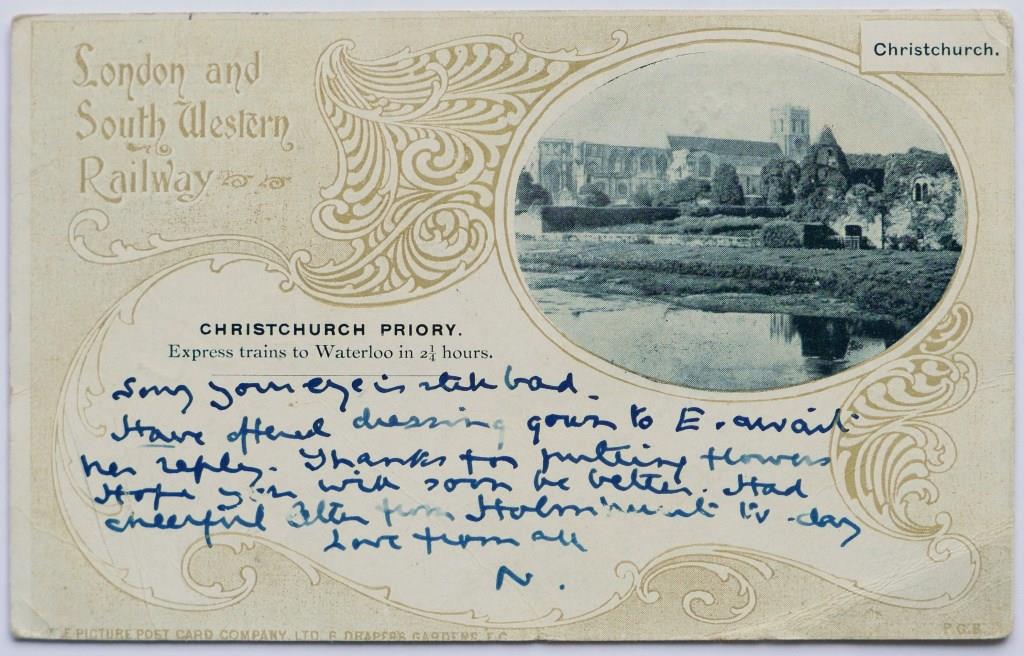 London and
South Western
Railway
Christchurch.
CHRISTCHURCH PRIORY.
Express trains to Waterloo in 2¼ hours.
Sorry your eye is still bad.
Have offered dressing gown to E. await
her reply. Thanks for putting flowers
Hope you will soon be better. Had
cheerful letter from to-day
Love from all
N.
PICTURE POST CARD COMPANY, LTD. 6 DRAPERS GARDENS, E.C.
P.G.H.